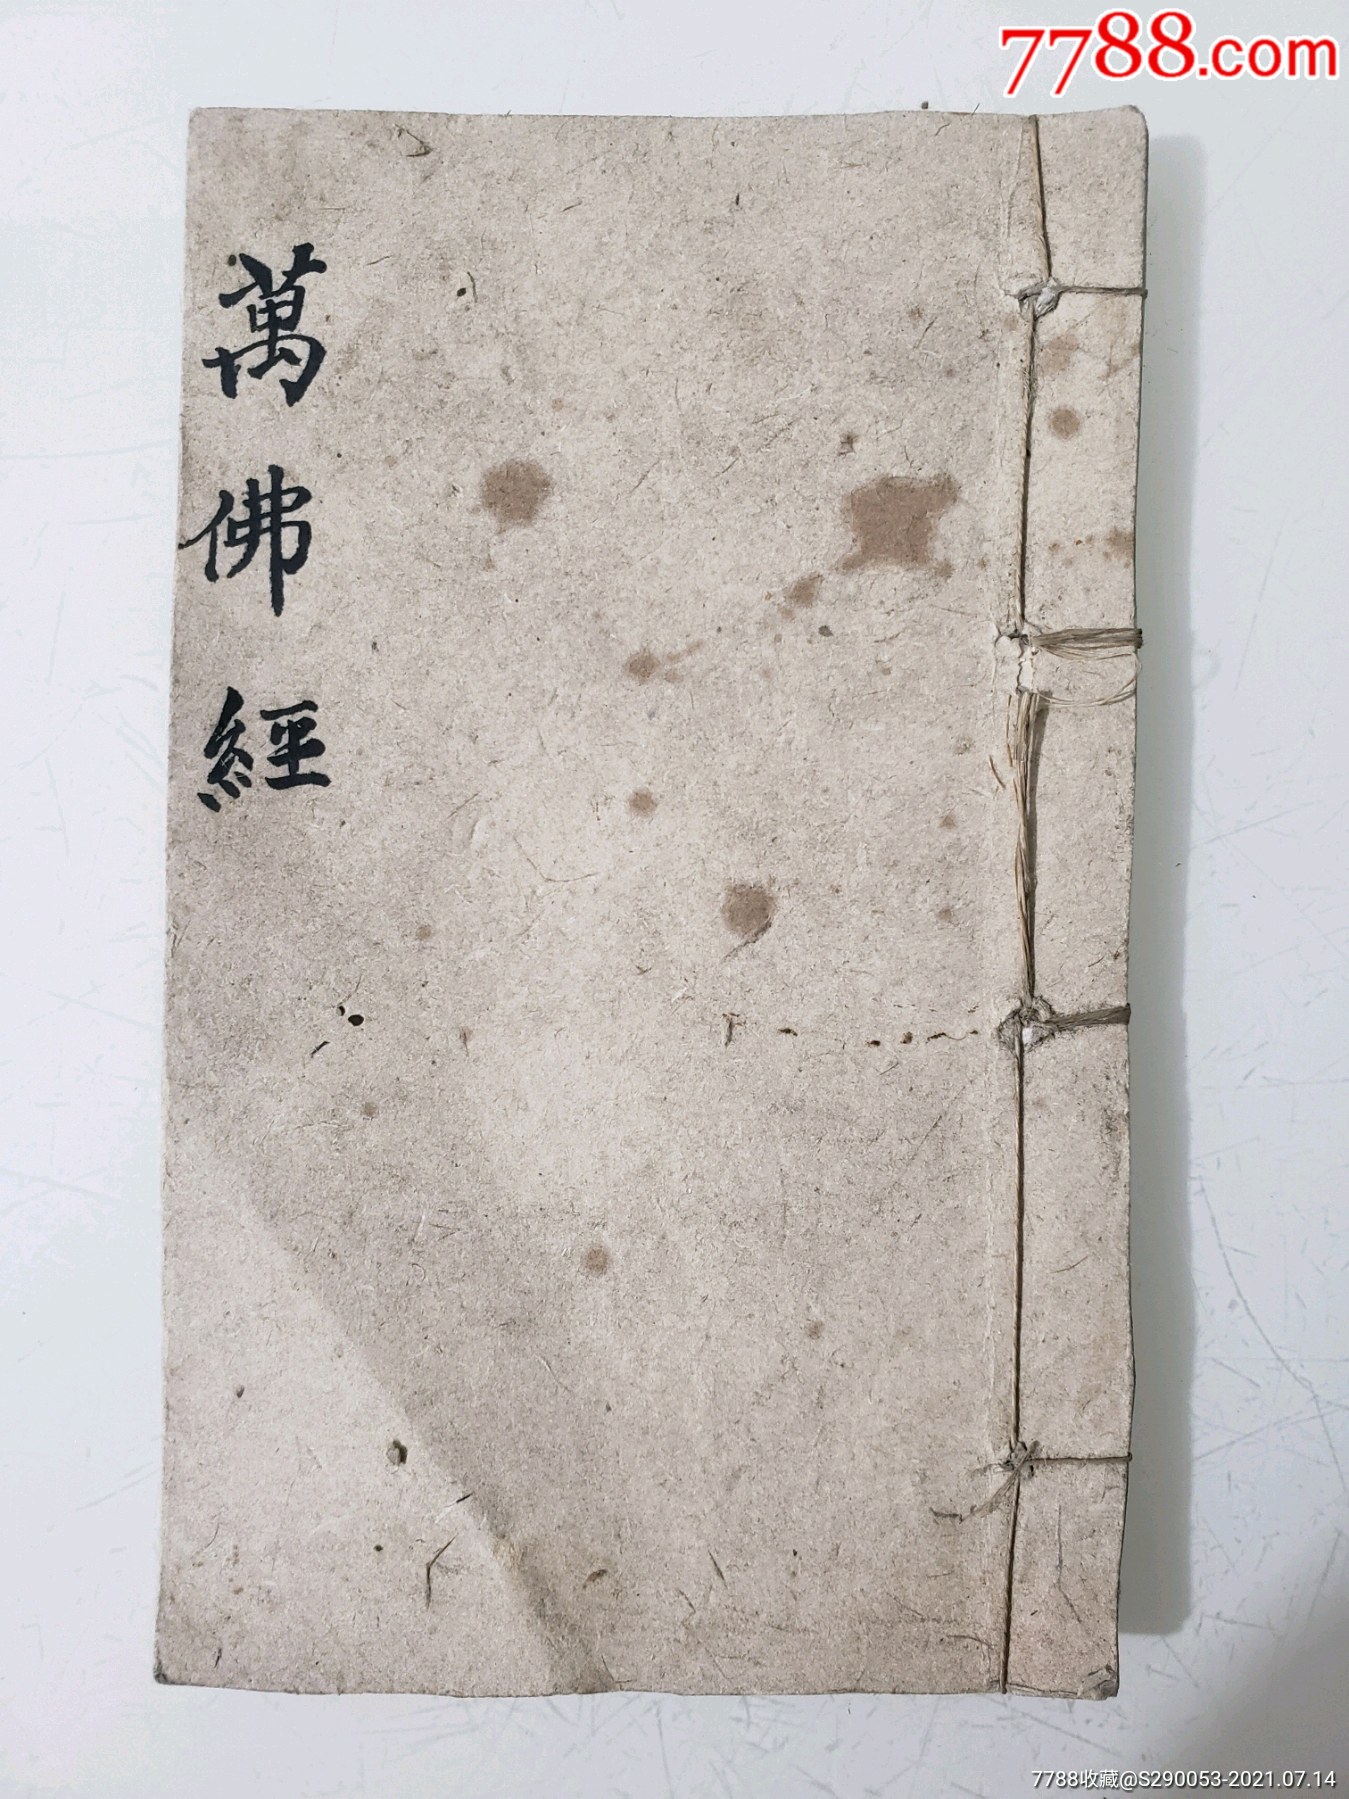 7788.com
萬佛經
7788收藏@S290053-2021.07.14